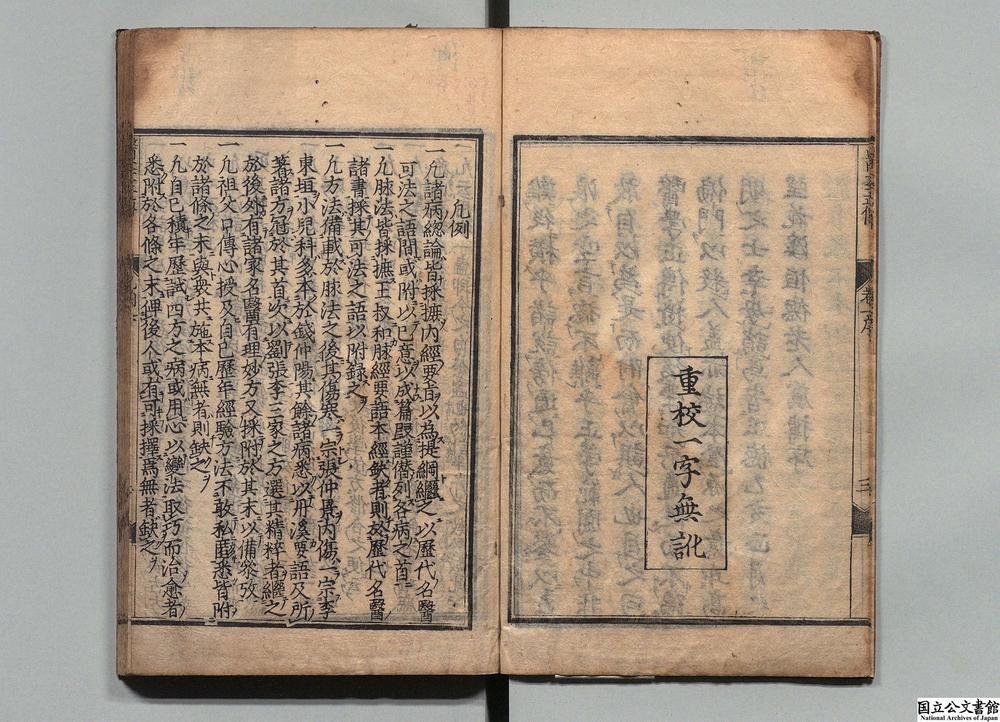 重校一字無訛
凡例
一凡諸病總論皆採摭內經要旨以為提綱繼之以歷代名醫
可法之語間或附以己意以成篇段謹僭列各病之首
一凡脉法皆採摭王叔和脉經要語本經缺者則於歷代名醫
諸書採其可法之語以附錄之
一凡方法備載於脉法之後其傷寒一宗張仲景內傷一宗李
東垣小兒科多本於錢仲陽其餘諸病悉以丹溪要語及所
著諸方冠於其首次以劉張李三家之方選其精粹者繼之
於後外有諸家名醫有理妙方又採附於其末以備參攷
一凡祖父口傳心授及自己歷年經驗方法不敢私匿悉皆附
於諸條之末與衆共施本病無者則缺之
一凡自己積年歷試四方之病或用心以變法取巧而治愈者
悉附於各條之末俾後人或有可採擇焉無者缺之
卷一序
三
国立公文書館
National Archives of Japan